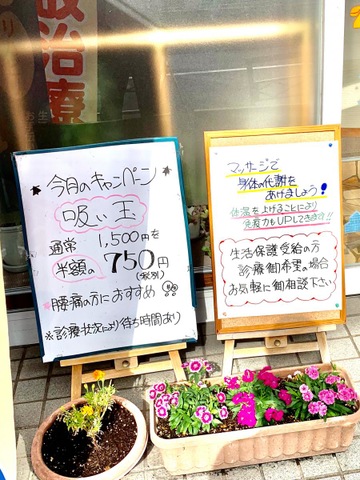 政治療
今月のキャンペーン
吸い玉
通常 1,500円を
半額の 750円
(税別)
腰痛の方におすすめ!!
※診療状況により待ち時間あり
マッサージで
身体の代謝を
あげましょう!
体温を上げることにより
免疫力もUPしてきます!!
生活保護受給の方
診療御希望の場合
お気軽に御相談下さい